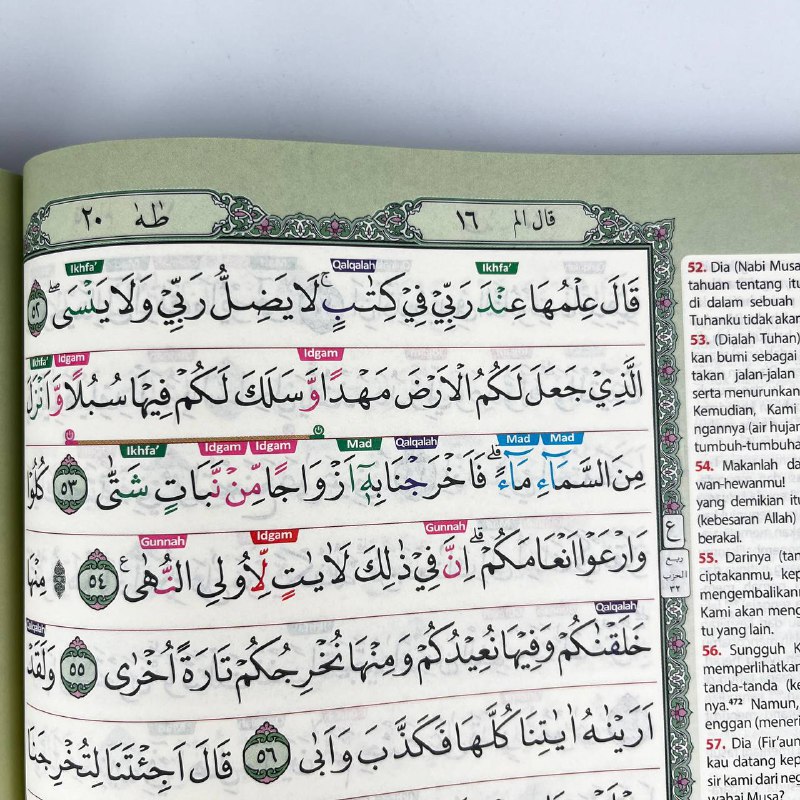 قال الم ١٦
طٰهٰ ٢٠
Ikhfa' Qalqalah Ikhfa'
قَالَ عِلْمُهَا عِنْدَ رَبِّيْ فِيْ كِتٰبٍۚ لَا يَضِلُّ رَبِّيْ وَلَا يَنْسَىۖ ٥٢
Idgam Idgam Ikhfa'
الَّذِيْ جَعَلَ لَكُمُ الْاَرْضَ مَهْدًا وَّسَلَكَ لَكُمْ فِيْهَا سُبُلًا وَّاَنْزَلَ
Mad Mad Qalqalah Mad Idgam Idgam Ikhfa'
مِنَ السَّمَاۤءِ مَاۤءًۗ فَاَخْرَجْنَا بِهٖٓ اَزْوَاجًا مِّنْ نَّبَاتٍ شَتّٰى ٥٣ كُلُوْا
Gunnah Idgam Gunnah
وَارْعَوْا اَنْعَامَكُمْۗ اِنَّ فِيْ ذٰلِكَ لَاٰيٰتٍ لِّاُولِى النُّهٰى ࣖ ٥٤ ۞ مِنْهَا
Qalqalah Qalqalah
خَلَقْنٰكُمْ وَفِيْهَا نُعِيْدُكُمْ وَمِنْهَا نُخْرِجُكُمْ تَارَةً اُخْرٰى ٥٥ وَلَقَدْ
اَرَيْنٰهُ اٰيٰتِنَا كُلَّهَا فَكَذَّبَ وَاَبٰى ٥٦ قَالَ اَجِئْتَنَا لِتُخْرِجَنَا
ع
ربع
الحزب
٣٢
52. Dia (Nabi Musa
tahuan tentang itu
di dalam sebuah
Tuhanku tidak akan
53. (Dialah Tuhan)
kan bumi sebagai
takan jalan-jalan
serta menurunkan
Kemudian, Kami
ngannya (air hujan
tumbuh-tumbuha
54. Makanlah da
wan-hewanmu!
yang demikian itu
(kebesaran Allah)
berakal.
55. Darinya (tan
ciptakanmu, kep
mengembalikanm
Kami akan meng
tu yang lain.
56. Sungguh K
memperlihatkan
tanda-tanda (ke
nya.⁴⁷² Namun,
enggan (meneri
57. Dia (Fir'aun
kau datang kep
sir kami dari neg
wahai Musa?